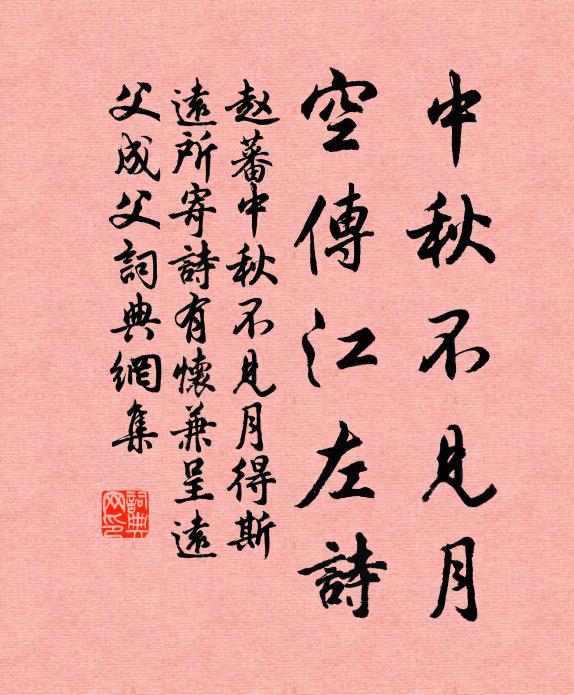 中秋不見月
空傳江左詩
赵蕃中秋不見月得斯
遠所寄詩有懷兼呈遠
父成父詞典網集
詞典
网印